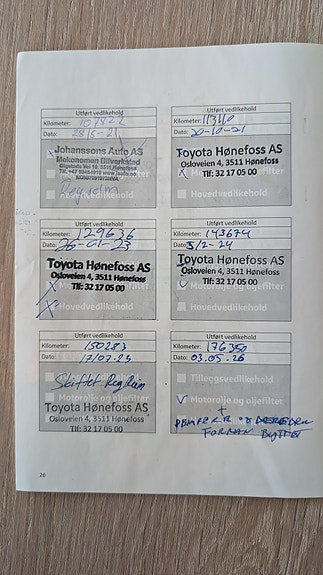 Utført vedlikehold
Kilometer: 107822
Dato: 28/5-21
Johanssons Auto AS
Mekonomen Bilverksted
3511 Hønefoss
Reg.reim
Utført vedlikehold
Kilometer: 113110
Dato: 20-10-21
Toyota Hønefoss AS
Osloveien 4, 3511 Hønefoss
X Tlf: 32 17 05 00
Utført vedlikehold
Kilometer: 129636
Dato: 26-01-23
Toyota Hønefoss AS
Osloveien 4, 3511 Hønefoss
X Tlf: 32 17 05 00
Motorolje og oljefilter
X Hovedvedlikehold
Utført vedlikehold
Kilometer: 143674
Dato: 5/2-24
Toyota Hønefoss AS
Osloveien 4, 3511 Hønefoss
Tlf: 32 17 05 00
Motorolje og oljefilter
Hovedvedlikehold
Utført vedlikehold
Kilometer: 150283
Dato: 17/07-25
Skiftet Reg Reim
Toyota Hønefoss AS
Osloveien 4, 3511 Hønefoss
Tlf: 32 17 05 00
Utført vedlikehold
Kilometer: 176350
Dato: 03.05.26
Tilleggsvedlikehold
Motorolje og oljefilter
+
FORRAN BYTTET
26